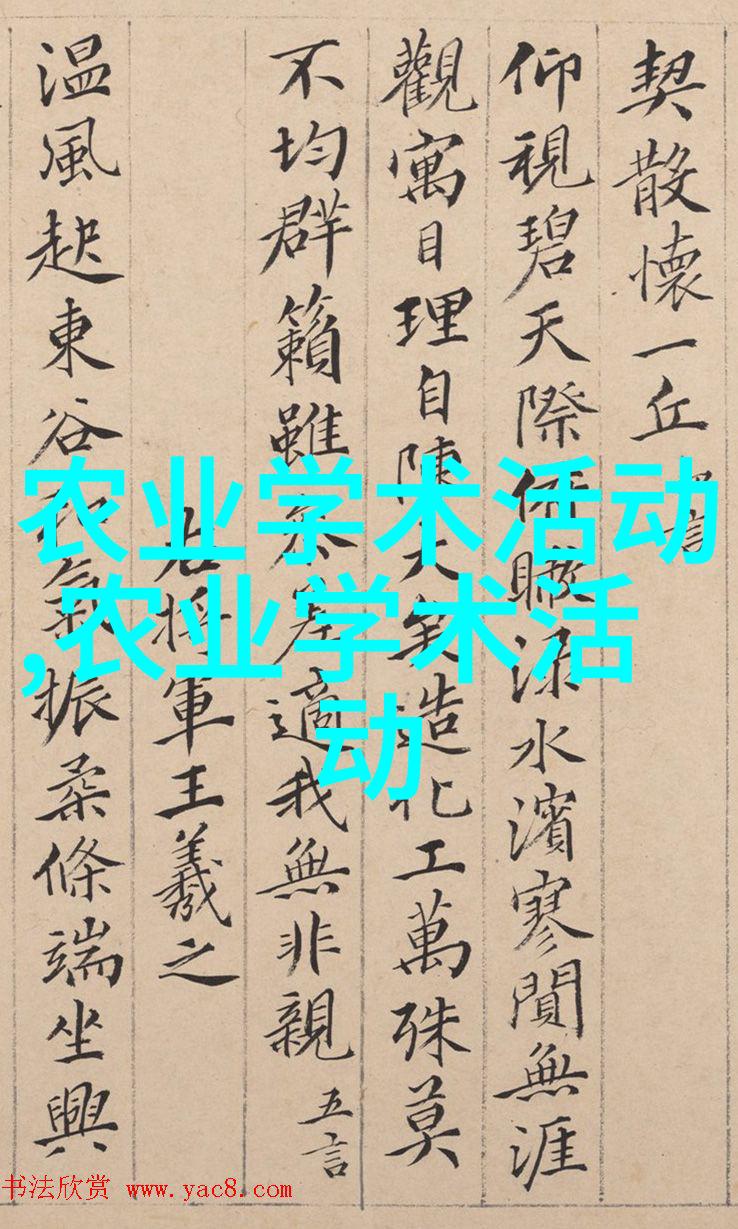 契散懷一丘 言
仰視碧天際俯瞰淥水濱寥閴無涯
觀寓目理自陳大矣造化工萬殊莫
不均群籟雖參差適我無非親 五言
右將軍王羲之
温風起東谷和氣振柔條端坐興
农业学术活动
,农业学术活
动
书法欣赏 www.yac8.com